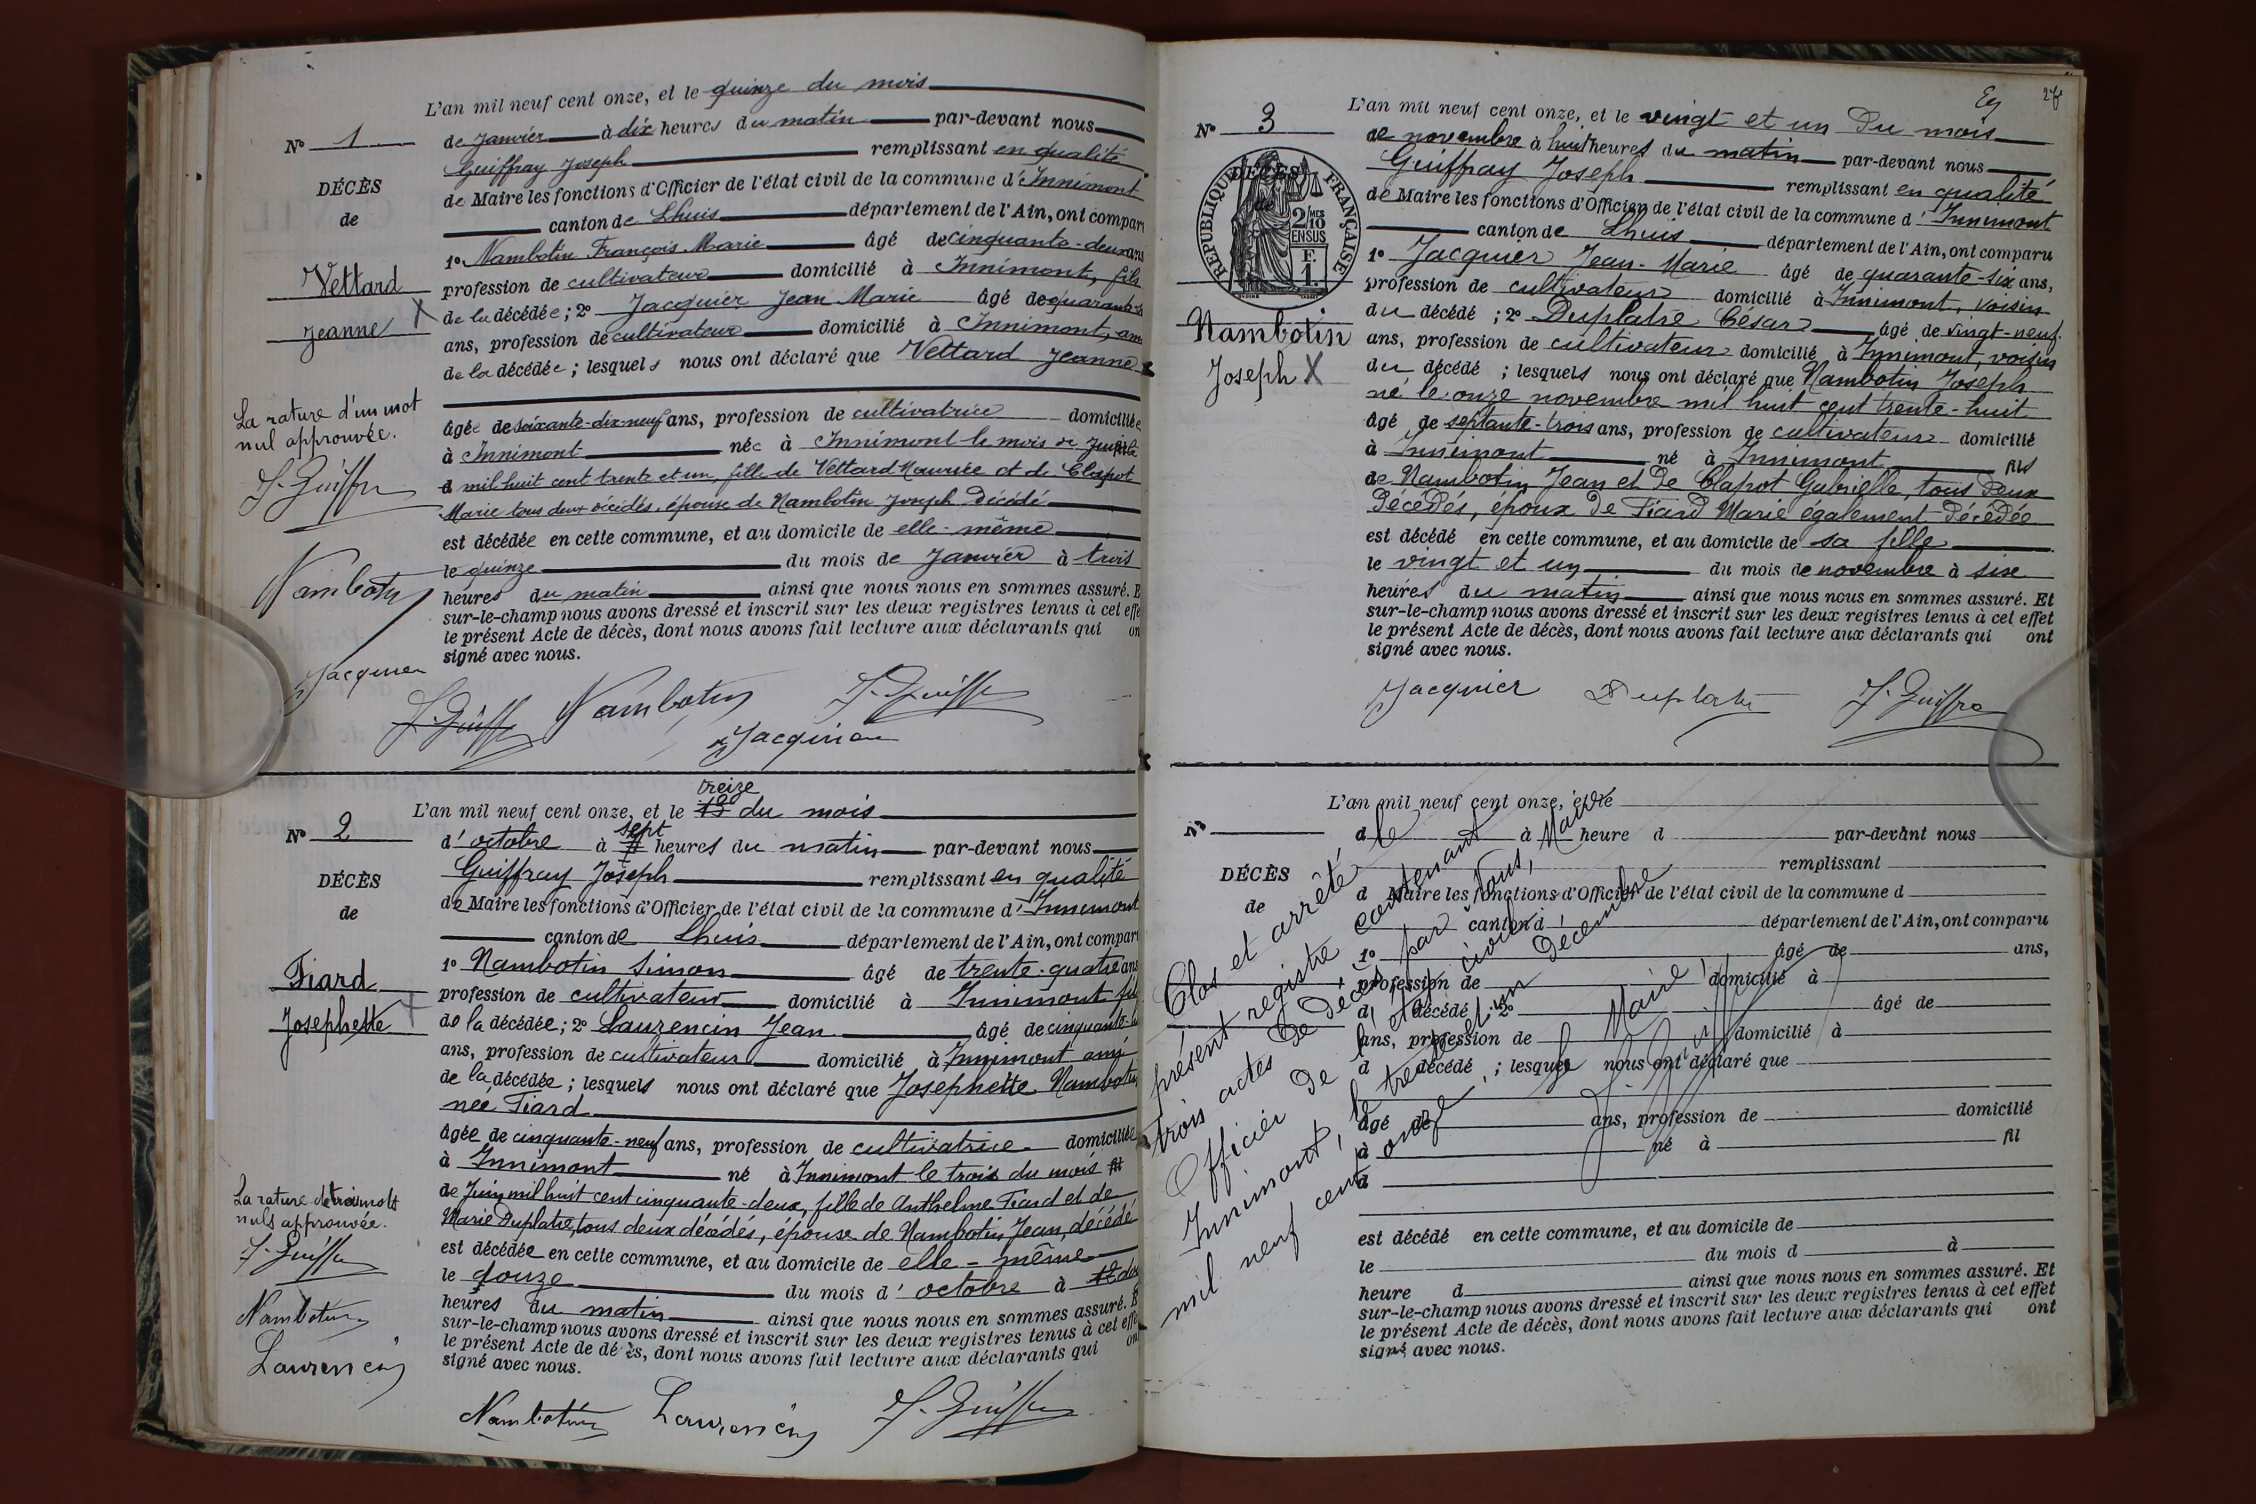 L'an mil neuf cent onze, et le quinze du mois
N° 1
de Janvier à dix heures du matin par-devant nous
Guiffray Joseph remplissant en qualité
DÉCÈS
de Maire les fonctions d'Officier de l'état civil de la commune d'Innimont
de
canton de Lhuis département de l'Ain, ont compar
1° Nambotin François Marie âgé de cinquante-deux ans
Vettard
profession de cultivateur domicilié à Innimont, fils
Jeanne X
de la décédée; 2° Jacquier Jean Marie âgé de quarante
ans, profession de cultivateur domicilié à Innimont, ami
de la décédée; lesquels nous ont déclaré que Vettard Jeanne
La rature d'un mot
nul approuvée.
J. Guiffra
Nambotin
Jacquier
âgée de soixante-dix-neuf ans, profession de cultivatrice domiciliée
à Innimont née à Innimont le mois de
mil huit cent trente et un, fille de Vettard Maurice et de Clapot
Marie tous deux décédés, épouse de Nambotin Joseph Décédé
est décédée en cette commune, et au domicile de elle-même
le quinze du mois de Janvier à trois
heures du matin ainsi que nous nous en sommes assuré. E
sur-le-champ nous avons dressé et inscrit sur les deux registres tenus à cet effe
le présent Acte de décès, dont nous avons fait lecture aux déclarants qui on
signé avec nous.
J. Guiffra Nambotin J. Guiffra
Jacquier
treize
L'an mil neuf cent onze, et le 13 du mois
N° 2
sept
d'octobre à heures du matin par-devant nous
Guiffray Joseph remplissant en qualité
DÉCÈS
de Maire les fonctions d'Officier de l'état civil de la commune d'Innimont
de
canton de Lhuis département de l'Ain, ont compar
1° Nambotin Simon âgé de trente-quatre ans
Fiard
profession de cultivateur domicilié à Innimont fils
Josephette X
de la décédée; 2° Laurencin Jean âgé de cinquante
ans, profession de cultivateur domicilié à Innimont ami
de la décédée; lesquels nous ont déclaré que Josephette Nambotin
née Fiard
âgée de cinquante-neuf ans, profession de cultivatrice domiciliée
à Innimont né à Innimont le trois du mois
de Juin mil huit cent cinquante-deux, fille de Anthelme Fiard et de
Marie Duplatre, tous deux décédés, épouse de Nambotin Jean, décédé
est décédée en cette commune, et au domicile de elle-même
le douze du mois d'octobre à
heures du matin ainsi que nous nous en sommes assuré. E
sur-le-champ nous avons dressé et inscrit sur les deux registres tenus à cet effe
le présent Acte de décès, dont nous avons fait lecture aux déclarants qui on
signé avec nous.
La rature de trois mots
nuls approuvée.
J. Guiffra
Nambotin
Laurencin
Nambotin Laurencin J. Guiffra
27
L'an mil neuf cent onze, et le vingt et un Du mois
N° 3
de novembre à huit heures du matin par-devant nous
Guiffray Joseph remplissant en qualité
DÉCÈS
de
RÉPUBLIQUE FRANÇAISE
2/10 MES
EN SUS
F.
1.
de Maire les fonctions d'Officier de l'état civil de la commune d'Innimont
canton de Lhuis département de l'Ain, ont comparu
1° Jacquier Jean-Marie âgé de quarante-six ans,
profession de cultivateur domicilié à Innimont, voisin
du décédé; 2° Duplatre César âgé de vingt-neuf
Nambotin
Joseph X
ans, profession de cultivateur domicilié à Innimont, voisin
du décédé; lesquels nous ont déclaré que Nambotin Joseph
né le onze novembre mil huit cent trente-huit
âgé de septante-trois ans, profession de cultivateur domicilié
à Innimont né à Innimont fils
de Nambotin Jean et De Clapot Gabrielle, tous Deux
Décédés, époux De Fiard Marie également Décédée
est décédé en cette commune, et au domicile de sa fille
le vingt et un du mois de novembre à six
heures du matin ainsi que nous nous en sommes assuré. Et
sur-le-champ nous avons dressé et inscrit sur les deux registres tenus à cet effet
le présent Acte de décès, dont nous avons fait lecture aux déclarants qui ont
signé avec nous.
Jacquier Duplatre J. Guiffra
L'an mil neuf cent onze, et le
N°
d à heure d par-devant nous
remplissant
DÉCÈS
d Maire les fonctions d'Officier de l'état civil de la commune d
de
canton d département de l'Ain, ont comparu
1° âgé de ans,
profession de domicilié à
d décédé 2° âgé de
ans, profession de domicilié à
d décédé; lesquels nous ont déclaré que
âgé de ans, profession de domicilié
à né à fil
d
est décédé en cette commune, et au domicile de
le du mois d à
heure d ainsi que nous nous en sommes assuré. Et
sur-le-champ nous avons dressé et inscrit sur les deux registres tenus à cet effet
le présent Acte de décès, dont nous avons fait lecture aux déclarants qui ont
signé avec nous.
Clos et arrêté le
présent registre contenant
trois actes De Décès par Nous, Maire
Officier De l'état civil
Innimont, le trente et un Décembre
mil neuf cent onze.
le Maire
J. Guiffra